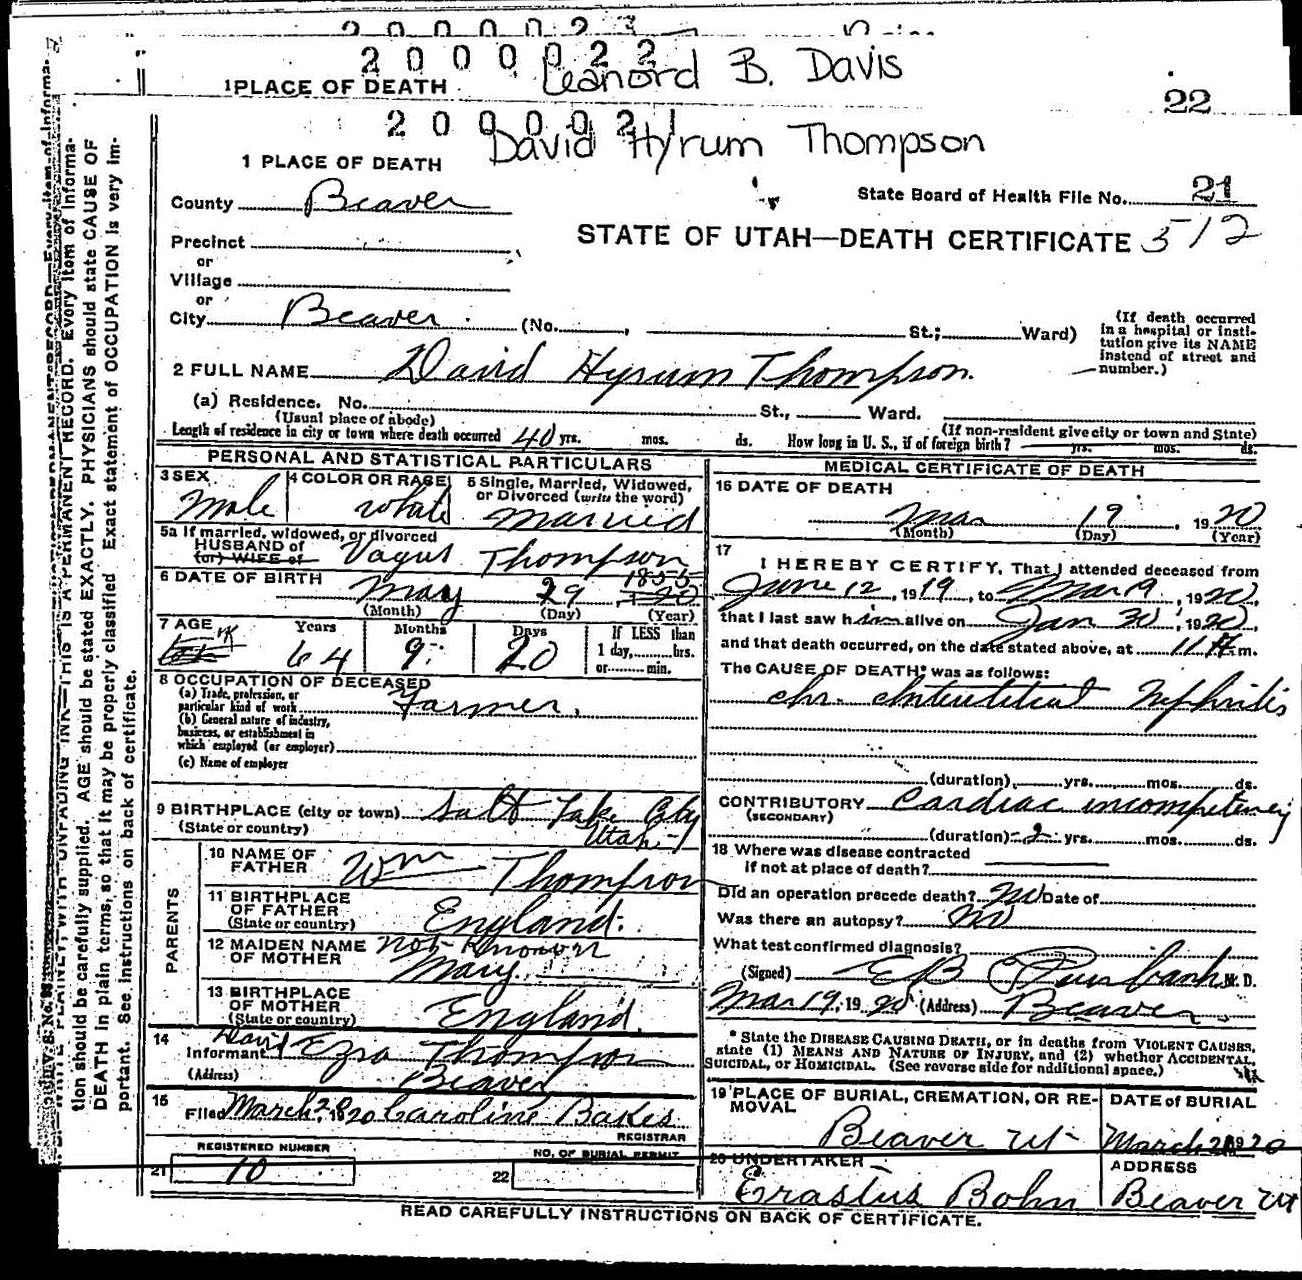 2 0 0 0 0 2 2
Leanord B. Davis
1 PLACE OF DEATH
22
2 0 0 0 0 2 1
David Hyrum Thompson
1 PLACE OF DEATH
County Beaver
State Board of Health File No. 21
STATE OF UTAH—DEATH CERTIFICATE 512
Precinct
or
Village
or
City Beaver (No. , St.; Ward)
(If death occurred in a hospital or institution give its NAME instead of street and number.)
2 FULL NAME David Hyrum Thompson.
(a) Residence. No. St., Ward.
(Usual place of abode) (If non-resident give city or town and State)
Length of residence in city or town where death occurred 40 yrs. mos. ds. How long in U. S., if of foreign birth? yrs. mos. ds.
PERSONAL AND STATISTICAL PARTICULARS
3 SEX 4 COLOR OR RACE 5 Single, Married, Widowed,
or Divorced (write the word)
Male White Married
5a If married, widowed, or divorced
HUSBAND of
(or) WIFE of
Thompson
6 DATE OF BIRTH May 29, 1855
(Month) (Day) (Year)
7 AGE Years Months Days If LESS than
64 9 20 1 day, hrs.
or min.
8 OCCUPATION OF DECEASED
(a) Trade, profession, or
particular kind of work Farmer,
(b) General nature of industry,
business, or establishment in
which employed (or employer)
(c) Name of employer
9 BIRTHPLACE (city or town) Salt Lake City
(State or country) Utah
PARENTS
10 NAME OF
FATHER Wm Thompson
11 BIRTHPLACE
OF FATHER England.
(State or country)
12 MAIDEN NAME not Known
OF MOTHER Mary
13 BIRTHPLACE
OF MOTHER
(State or country) England.
14 David
Informant Ezra Thompson
(Address) Beaver
15
Filed March 1920 Caroline Bakes
REGISTRAR
REGISTERED NUMBER NO. OF BURIAL PERMIT
21 10 22
MEDICAL CERTIFICATE OF DEATH
16 DATE OF DEATH
Mar 19, 1920
(Month) (Day) (Year)
17
I HEREBY CERTIFY, That I attended deceased from
June 12, 1919, to Mar 19, 1920,
that I last saw him alive on Jan 30, 1920,
and that death occurred, on the date stated above, at 11 m.
The CAUSE OF DEATH* was as follows:
chr. Interstitial Nephritis
(duration) yrs. mos. ds.
CONTRIBUTORY Cardiac incompetency
(SECONDARY)
(duration) 2 yrs. mos. ds.
18 Where was disease contracted
if not at place of death?
Did an operation precede death? No Date of
Was there an autopsy? No
What test confirmed diagnosis?
(Signed) E B M. D.
Mar 19, 1920 (Address) Beaver
* State the DISEASE CAUSING DEATH, or in deaths from VIOLENT CAUSES,
state (1) MEANS AND NATURE OF INJURY, and (2) whether ACCIDENTAL,
SUICIDAL, or HOMICIDAL. (See reverse side for additional space.)
19 PLACE OF BURIAL, CREMATION, OR RE-
MOVAL
DATE of BURIAL
Beaver Ut March 1920
20 UNDERTAKER ADDRESS
Erastus Bohn Beaver Ut
READ CAREFULLY INSTRUCTIONS ON BACK OF CERTIFICATE.
WRITE PLAINLY, WITH UNFADING INK—THIS IS A PERMANENT RECORD. Every item of informa-
tion should be carefully supplied. AGE should be stated EXACTLY. PHYSICIANS should state CAUSE OF
DEATH in plain terms, so that it may be properly classified. Exact statement of OCCUPATION is very im-
portant. See instructions on back of certificate.